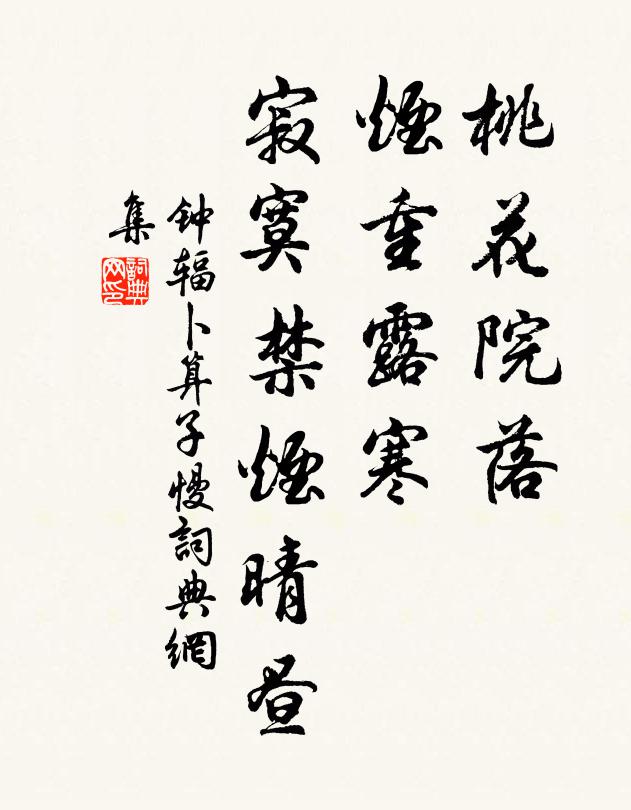 桃花院落
煙重露寒
寂寞禁煙晴昼
钟辐卜算子慢詞典網
集
詞典
网印